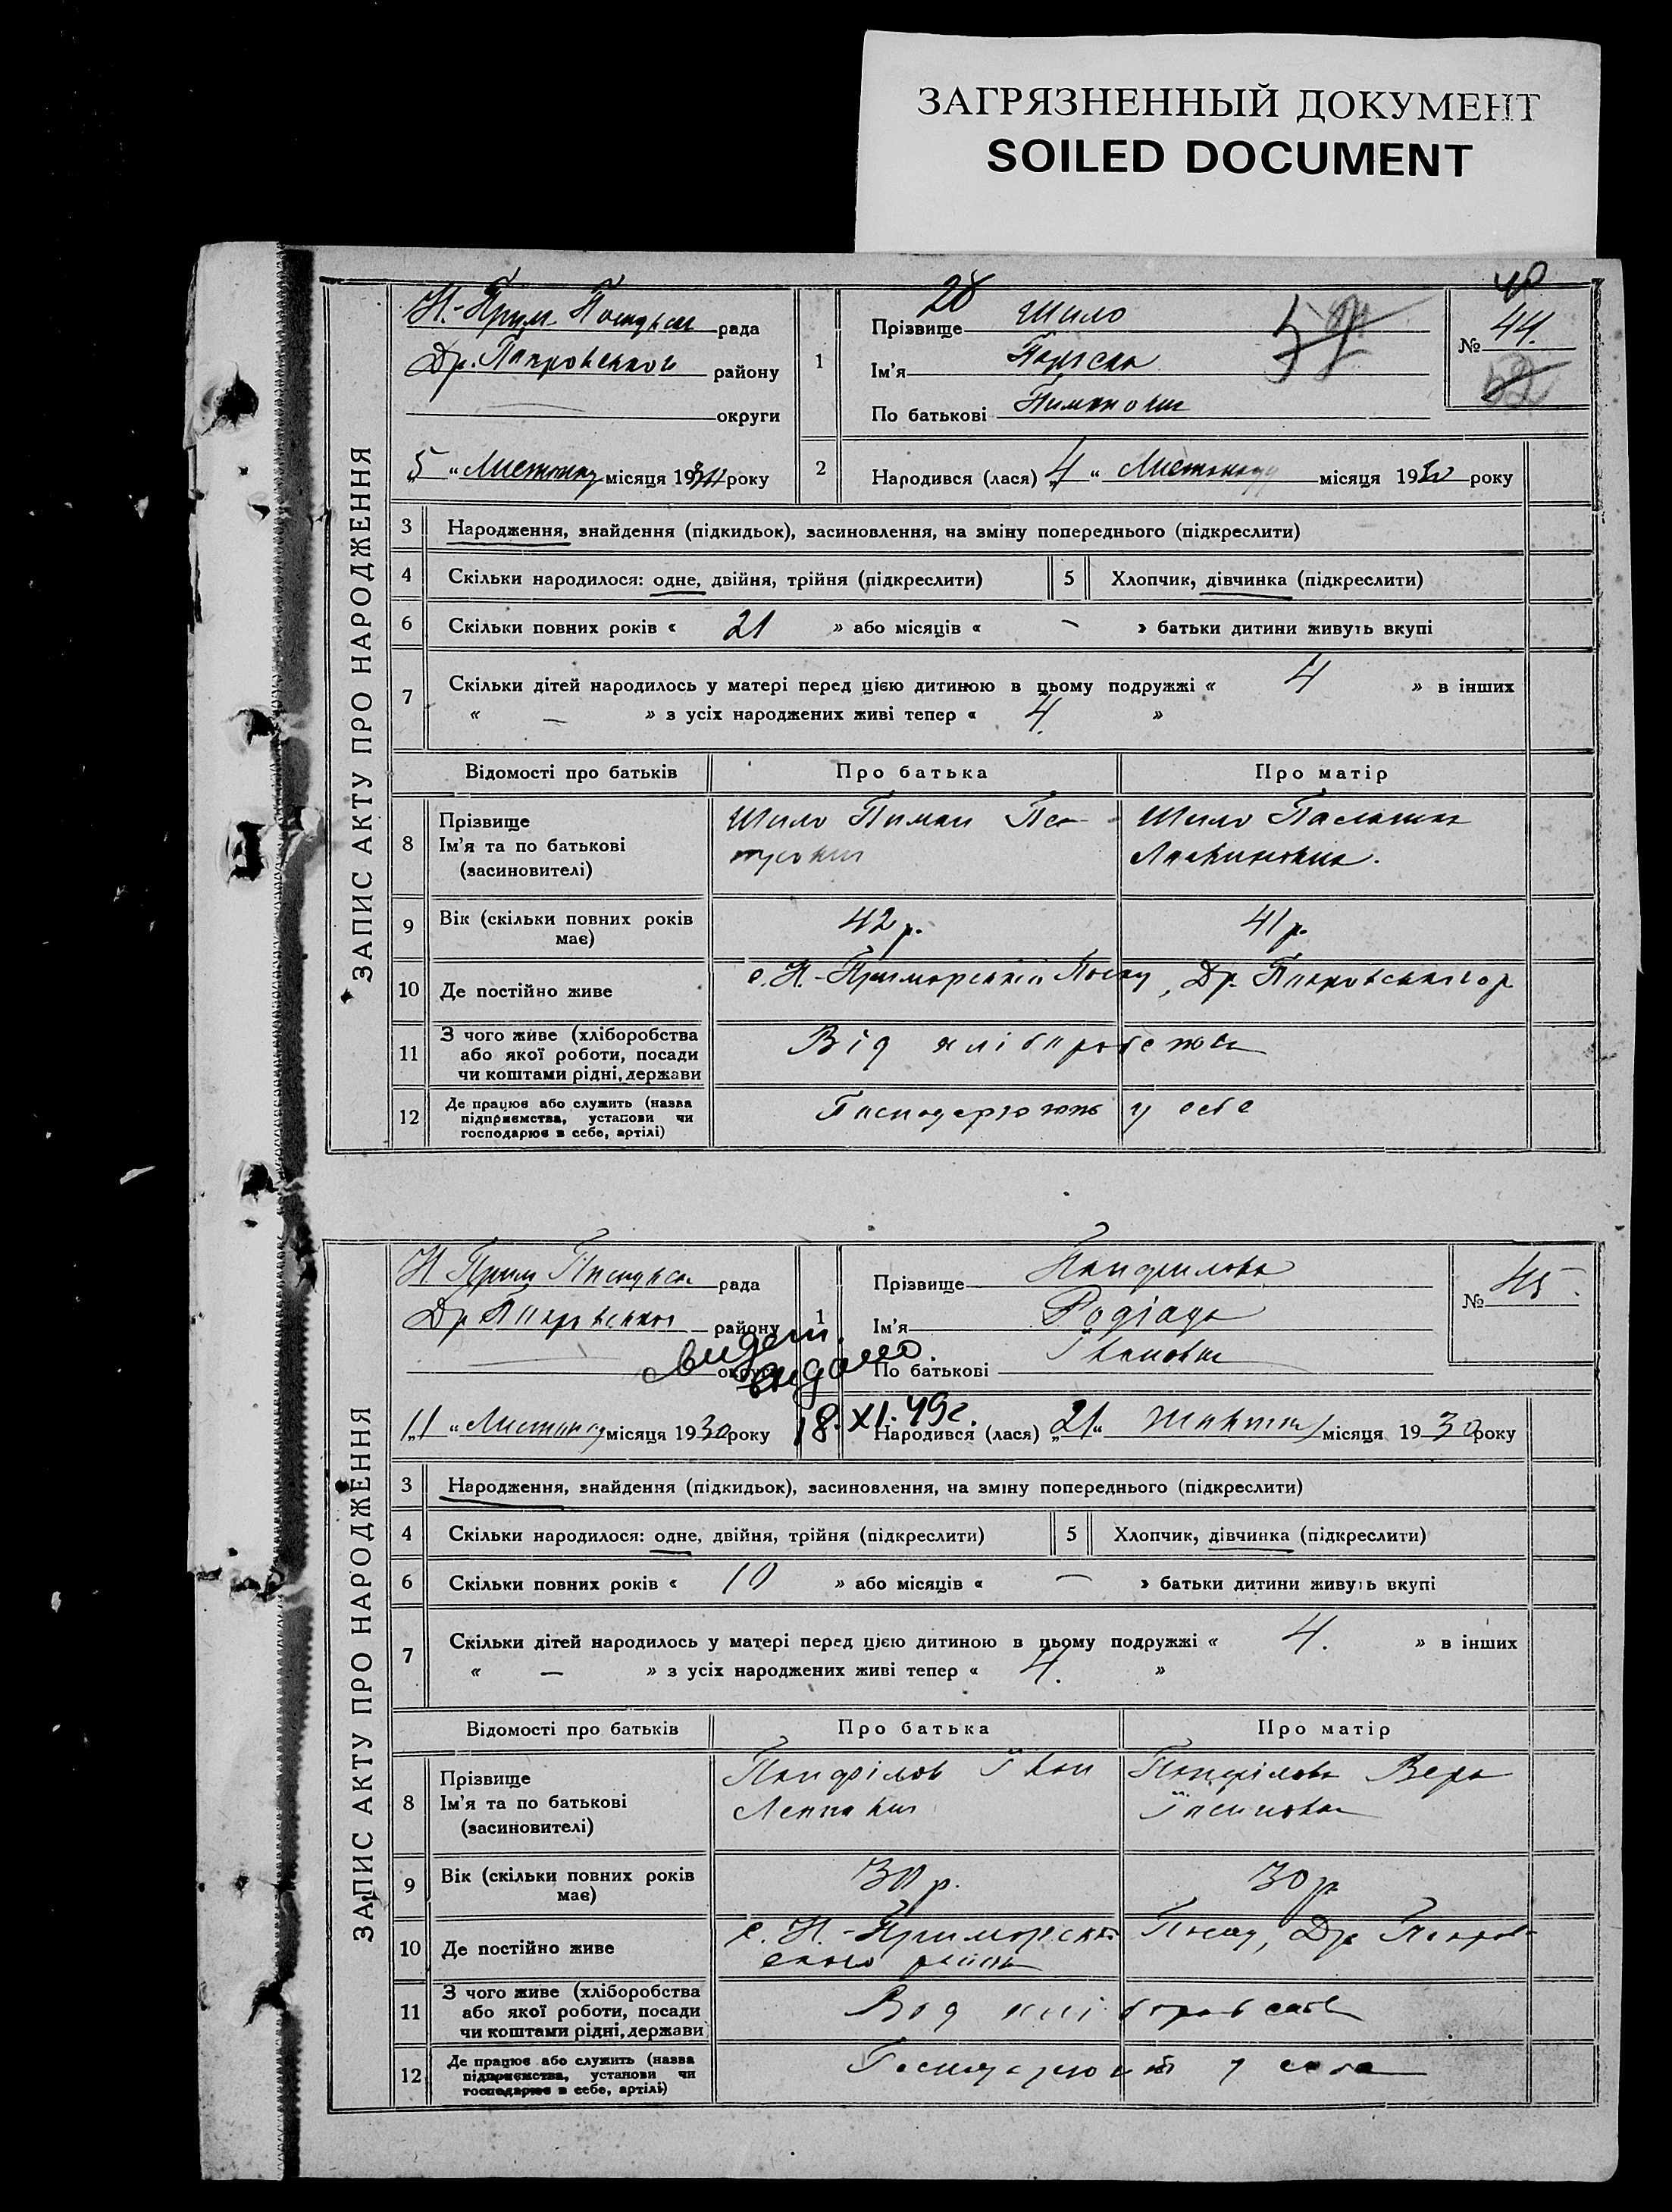 ЗАГРЯЗНЕННЫЙ ДОКУМЕНТ
SOILED DOCUMENT
ЗАПИС АКТУ ПРО НАРОДЖЕННЯ
Н.-Прим. рада
Др. Покровського району
округи
1
28
Прізвище Шило
Ім'я
По батькові
40
№ 44.
"5" Листопад місяця 1930 року
2
Народився (лася) "4" Листопаду місяця 1930 року
3 Народження, знайдення (підкидьок), засиновлення, на зміну попереднього (підкреслити)
4 Скільки народилося: одне, двійня, трійня (підкреслити)
5 Хлопчик, дівчинка (підкреслити)
6 Скільки повних років « 21 » або місяців « – » батьки дитини живуть вкупі
7 Скільки дітей народилось у матері перед цією дитиною в цьому подружжі « 4 » в інших
« – » з усіх народжених живі тепер « 4. »
Відомості про батьків Про батька Про матір
8 Прізвище
Ім'я та по батькові
(засиновителі)
Шило Пимон
Шило
9 Вік (скільки повних років
має)
42 р. 41 р.
10 Де постійно живе
с. Н.-Приморський Посад, Др. Покровського р
11 З чого живе (хліборобства
або якої роботи, посади
чи коштами рідні, держави
Від хліборобства
12 Де працює або служить (назва
підприємства, установи чи
господарює в себе, артілі)
Господарюють у себе
ЗАПИС АКТУ ПРО НАРОДЖЕННЯ
Н Прим рада
Др Покровського району
округи
видано.
18.XI.49г.
1
Прізвище Панфилова
Ім'я
По батькові Івановна
№ 45.
"11" Листопад місяця 1930 року
Народився (лася) "21" Жовтня місяця 1930 року
3 Народження, знайдення (підкидьок), засиновлення, на зміну попереднього (підкреслити)
4 Скільки народилося: одне, двійня, трійня (підкреслити)
5 Хлопчик, дівчинка (підкреслити)
6 Скільки повних років « 10 » або місяців « – » батьки дитини живуть вкупі
7 Скільки дітей народилось у матері перед цією дитиною в цьому подружжі « 4. » в інших
« – » з усіх народжених живі тепер « 4. »
Відомості про батьків Про батька Про матір
8 Прізвище
Ім'я та по батькові
(засиновителі)
Панфілов Іван
Панфілова Вера
9 Вік (скільки повних років
має)
30 р. 30 р
10 Де постійно живе
с. Н.-Приморский Посад, Др Покров-
ського района
11 З чого живе (хліборобства
або якої роботи, посади
чи коштами рідні, держави
Вод хліборобства
12 Де працює або служить (назва
підприємства, установи чи
господарює в себе, артілі)
Господарюють у себе